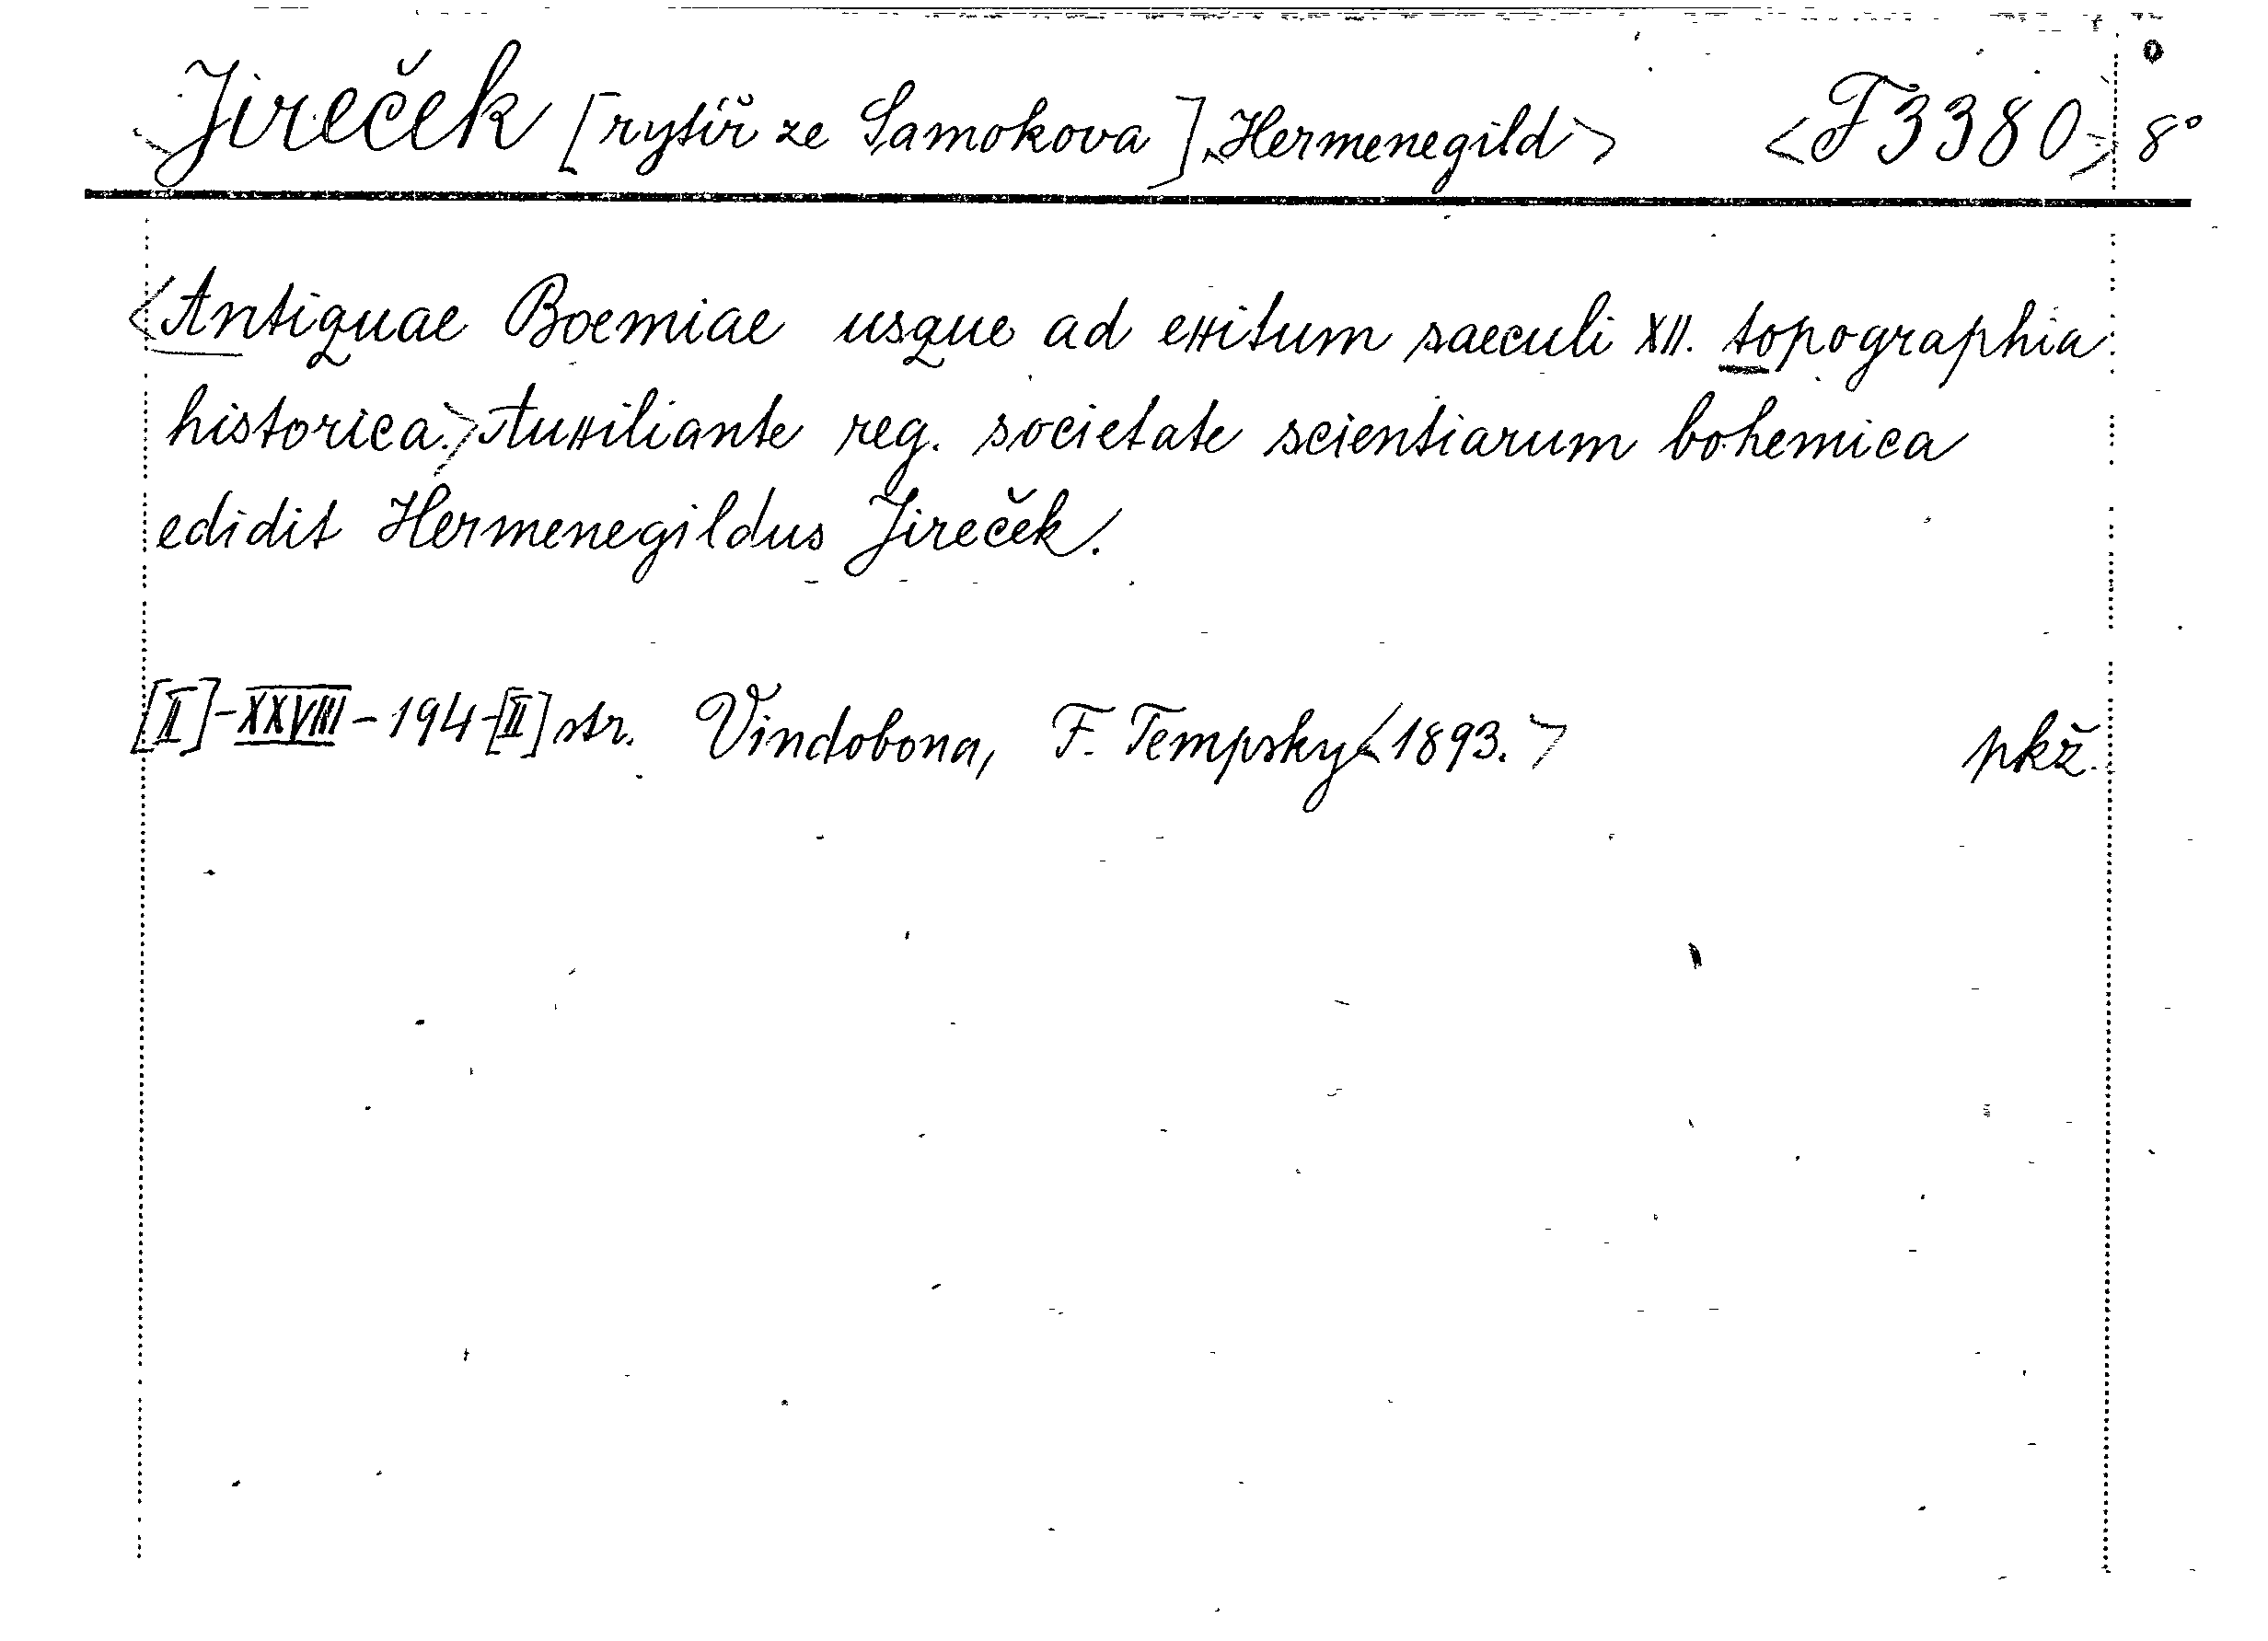 <Jireček [rytíř ze Samokova], Hermenegild> <F 3380> 8°
<Antiquae Boemiae usque ad exitum saeculi XII. topographia
historica.> Auxiliante reg. societate scientiarum bohemica
edidit Hermenegildus Jireček.
[II]-XXVIII-194-[II] str. Vindobona, F. Tempsky <1893.> pkž.